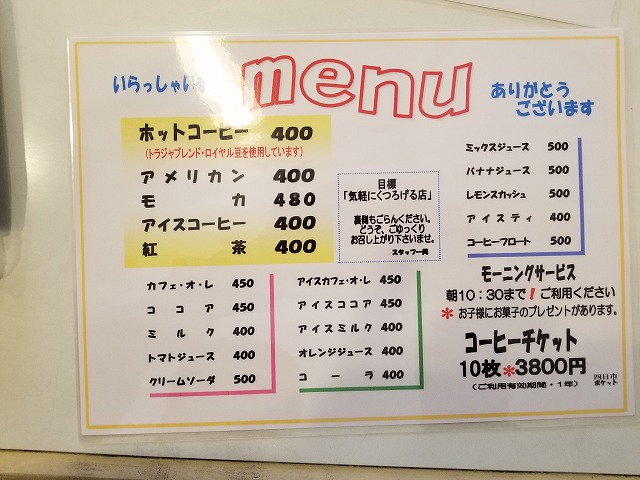 いらっしゃいま
menu
ありがとう
ございます
ホットコーヒー 400
(トラジャブレンド・ロイヤル豆を使用しています)
アメリカン 400
モカ 480
アイスコーヒー 400
紅茶 400
目標
「気軽にくつろげる店」
裏側もごらんください。
どうぞ、ごゆっくり
お召し上がり下さいませ。
スタッフ一同
ミックスジュース 500
バナナジュース 500
レモンスカッシュ 500
アイスティ 400
コーヒーフロート 500
カフェ・オ・レ 450
ココア 450
ミルク 400
トマトジュース 400
クリームソーダ 500
アイスカフェ・オ・レ 450
アイスココア 450
アイスミルク 400
オレンジジュース 400
コーラ 400
モーニングサービス
朝10:30まで!ご利用ください
*お子様にお菓子のプレゼントがあります。
コーヒーチケット
10枚*3800円
(ご利用有効期間・1年)
四日市
ポケット